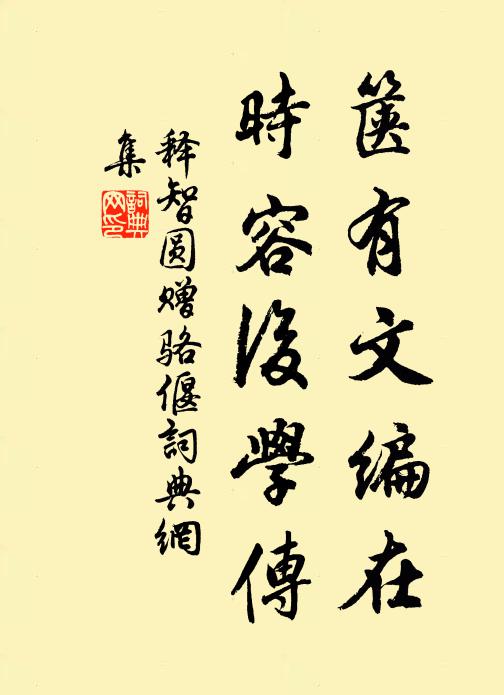 篋有文編在
時容後學傳
释智圆赠骆偃詞典網
集
詞典網印